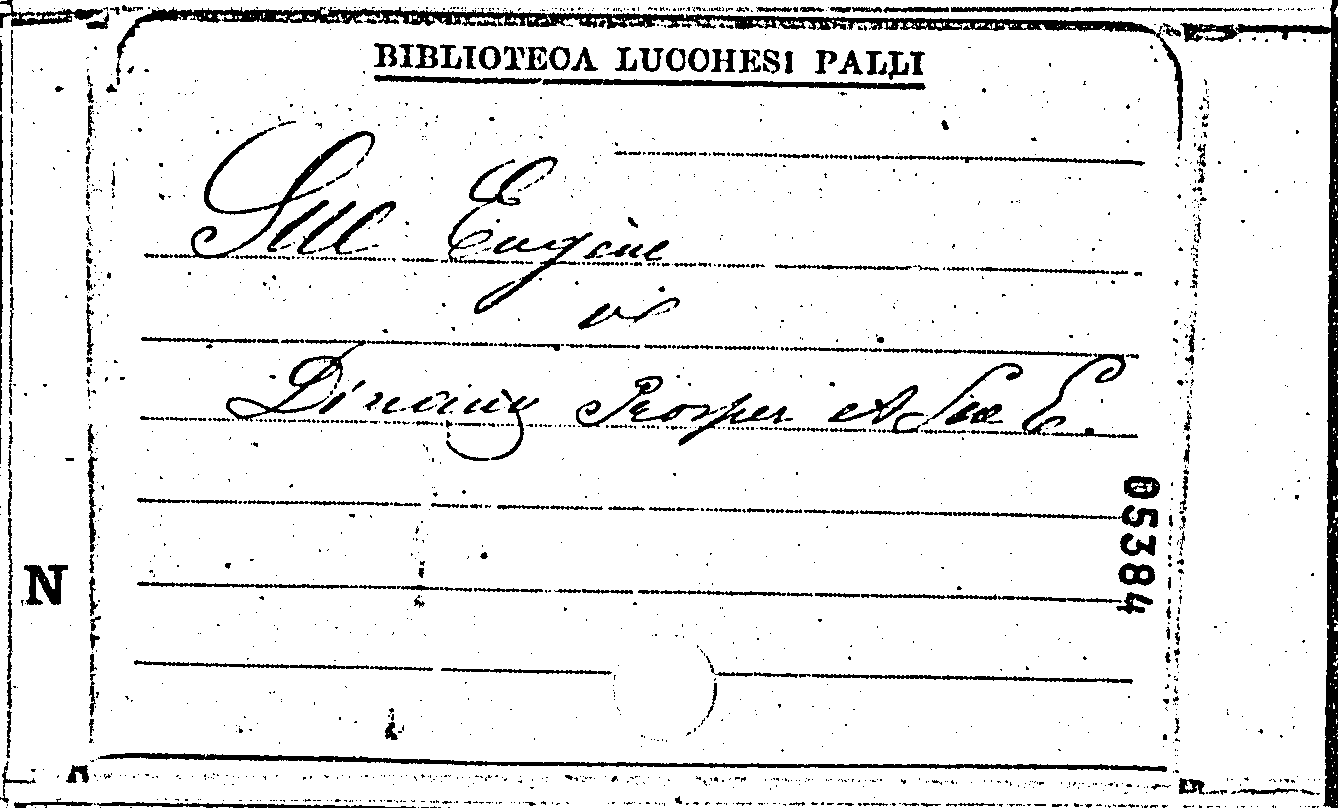 BIBLIOTECA LUCCHESI PALLI
Sue Eugène
v
Dinaux Prosper et Sue E.
05384
N